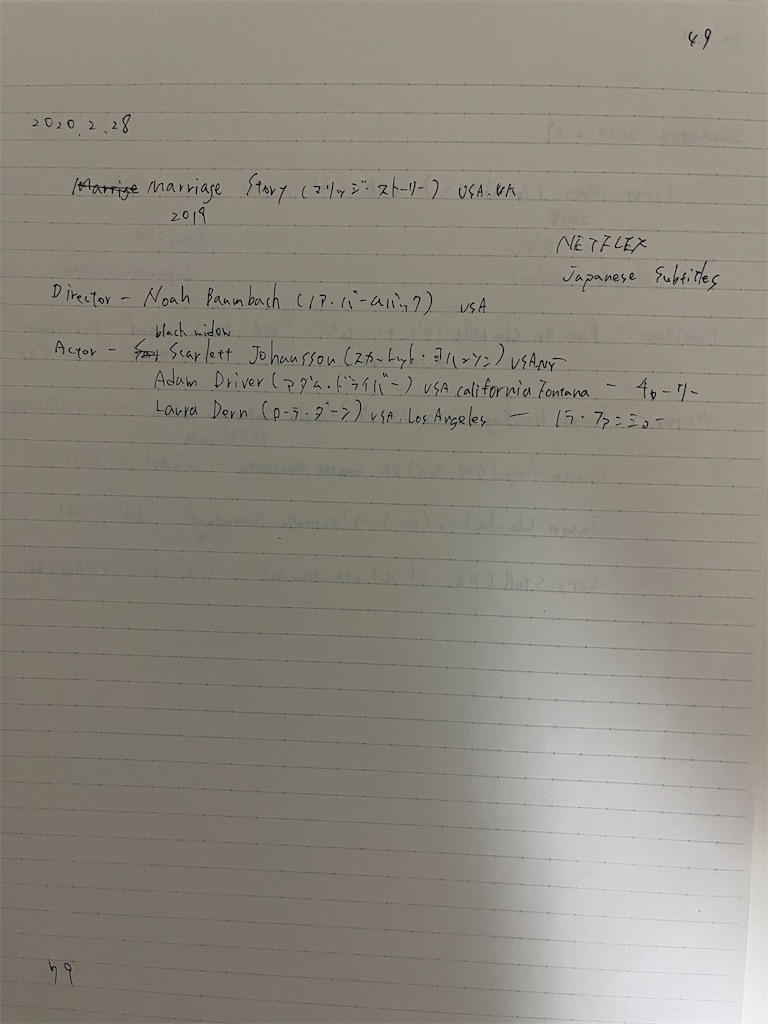 49
2020.2.28
Marriage Story (マリッジ・ストーリー) USA.UK
2019
NETFLEX
Japanese Subtitles
Director - Noah Baumbach (ノア・バームバック) USA
black widow
Actor - Scarlett Johansson (スカーレット・ヨハンソン) USA.NY
Adam Driver (アダム・ドライバー) USA california Fontana -
Laura Dern (ローラ・ダーン) USA. Los Angeles -
49